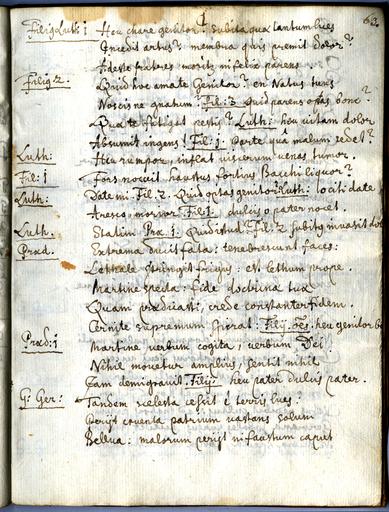 62.
Filiꝯ Luth: 1 Heu chare genitor! subita quæ tantum lues
Gnedit artus? membra quis premit dolor?
Adeste fratres moritur infelix parens
Filiꝯ 2. Quid hoc amate Genitor? en Natus tuus
Noscisne gnatum. Fil: 3. Quid parens optas bone?
Quæ te fatigat pestis? Luth: heu uitam dolor
Absumit ingens! Fil: 1. Parte quâ malum sedet?
Luth: Heu rumpor, inflat uiscerum uenas tumor.
Fil: 1 Fors nocuit haustus fortius Bacchi liquor?
Luth: Date mi. Fil. 2. Quid optas genitor? Luth: loci date
Aresco morior. Fil 1. dulcis o pater nocet
Luth. Statim Præ. 1. Quid istud? Fil 2 subitus inuasit dolor
Præd. Extrema ducit fata: tenebrescunt faces:
Lethale stringit frigus: est lethum prope.
Martine specta: fide doctrina tua
Quam prædicasti, crede constanter fidem.
Cernite supremum spirat. Filij oēs. heu genitor bo
Præd: 1 Martine uerbum cogita, uerbum Dei
Nihil mouetur amplius, sentit nihil
Iam demigrauit. Filij heu pater dulcis pater.
G: Ger: Tandem scelesta cessit è terris lues:
Periit cruenta patrium uastans solum
Bellua: malorum periit infaustum caput